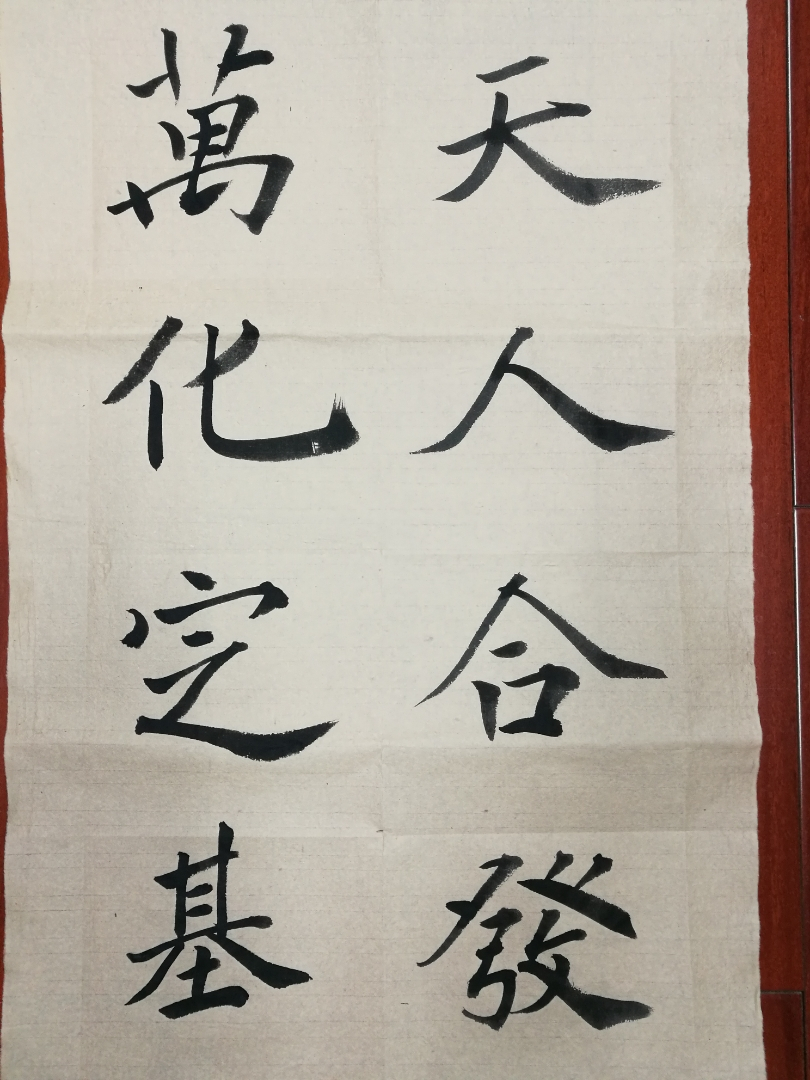 天人合發
萬化定基